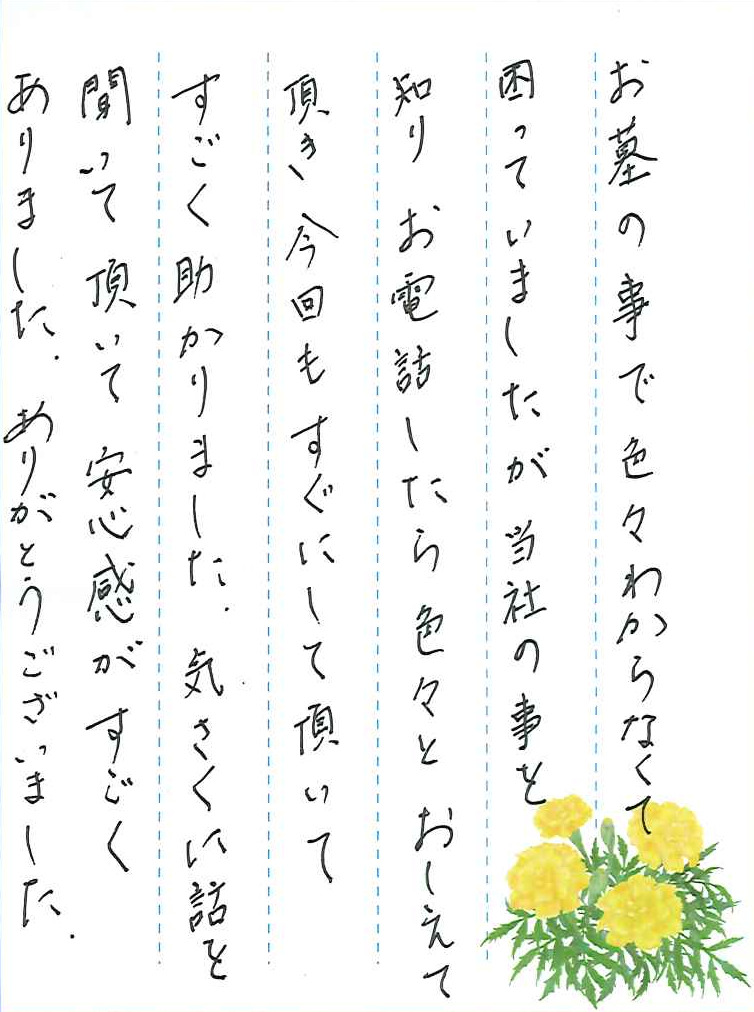 お墓の事で色々わからなくて
困っていましたが当社の事を
知りお電話したら色々とおしえて
頂き今回もすぐにして頂いて
すごく助かりました.気さくに話を
聞いて頂いて安心感がすごく
ありました.ありがとうございました.